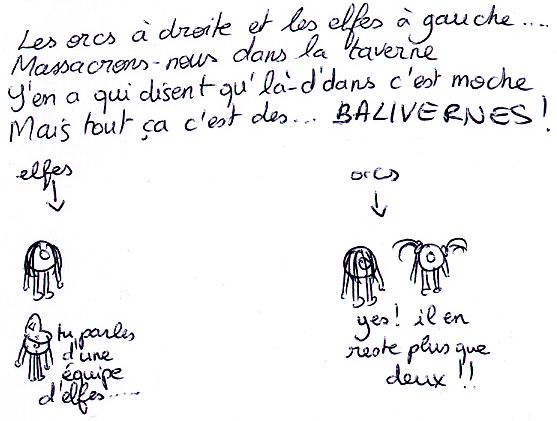 Les orcs à droite et les elfes à gauche....
Massacrons-nous dans la taverne
Y'en a qui disent qu'là-d'dans c'est moche
Mais tout ça c'est des... BALIVERNES !
elfes
orcs
tu parles
d'une
équipe
d'elfes.....
yes! il en
reste plus que
deux !!